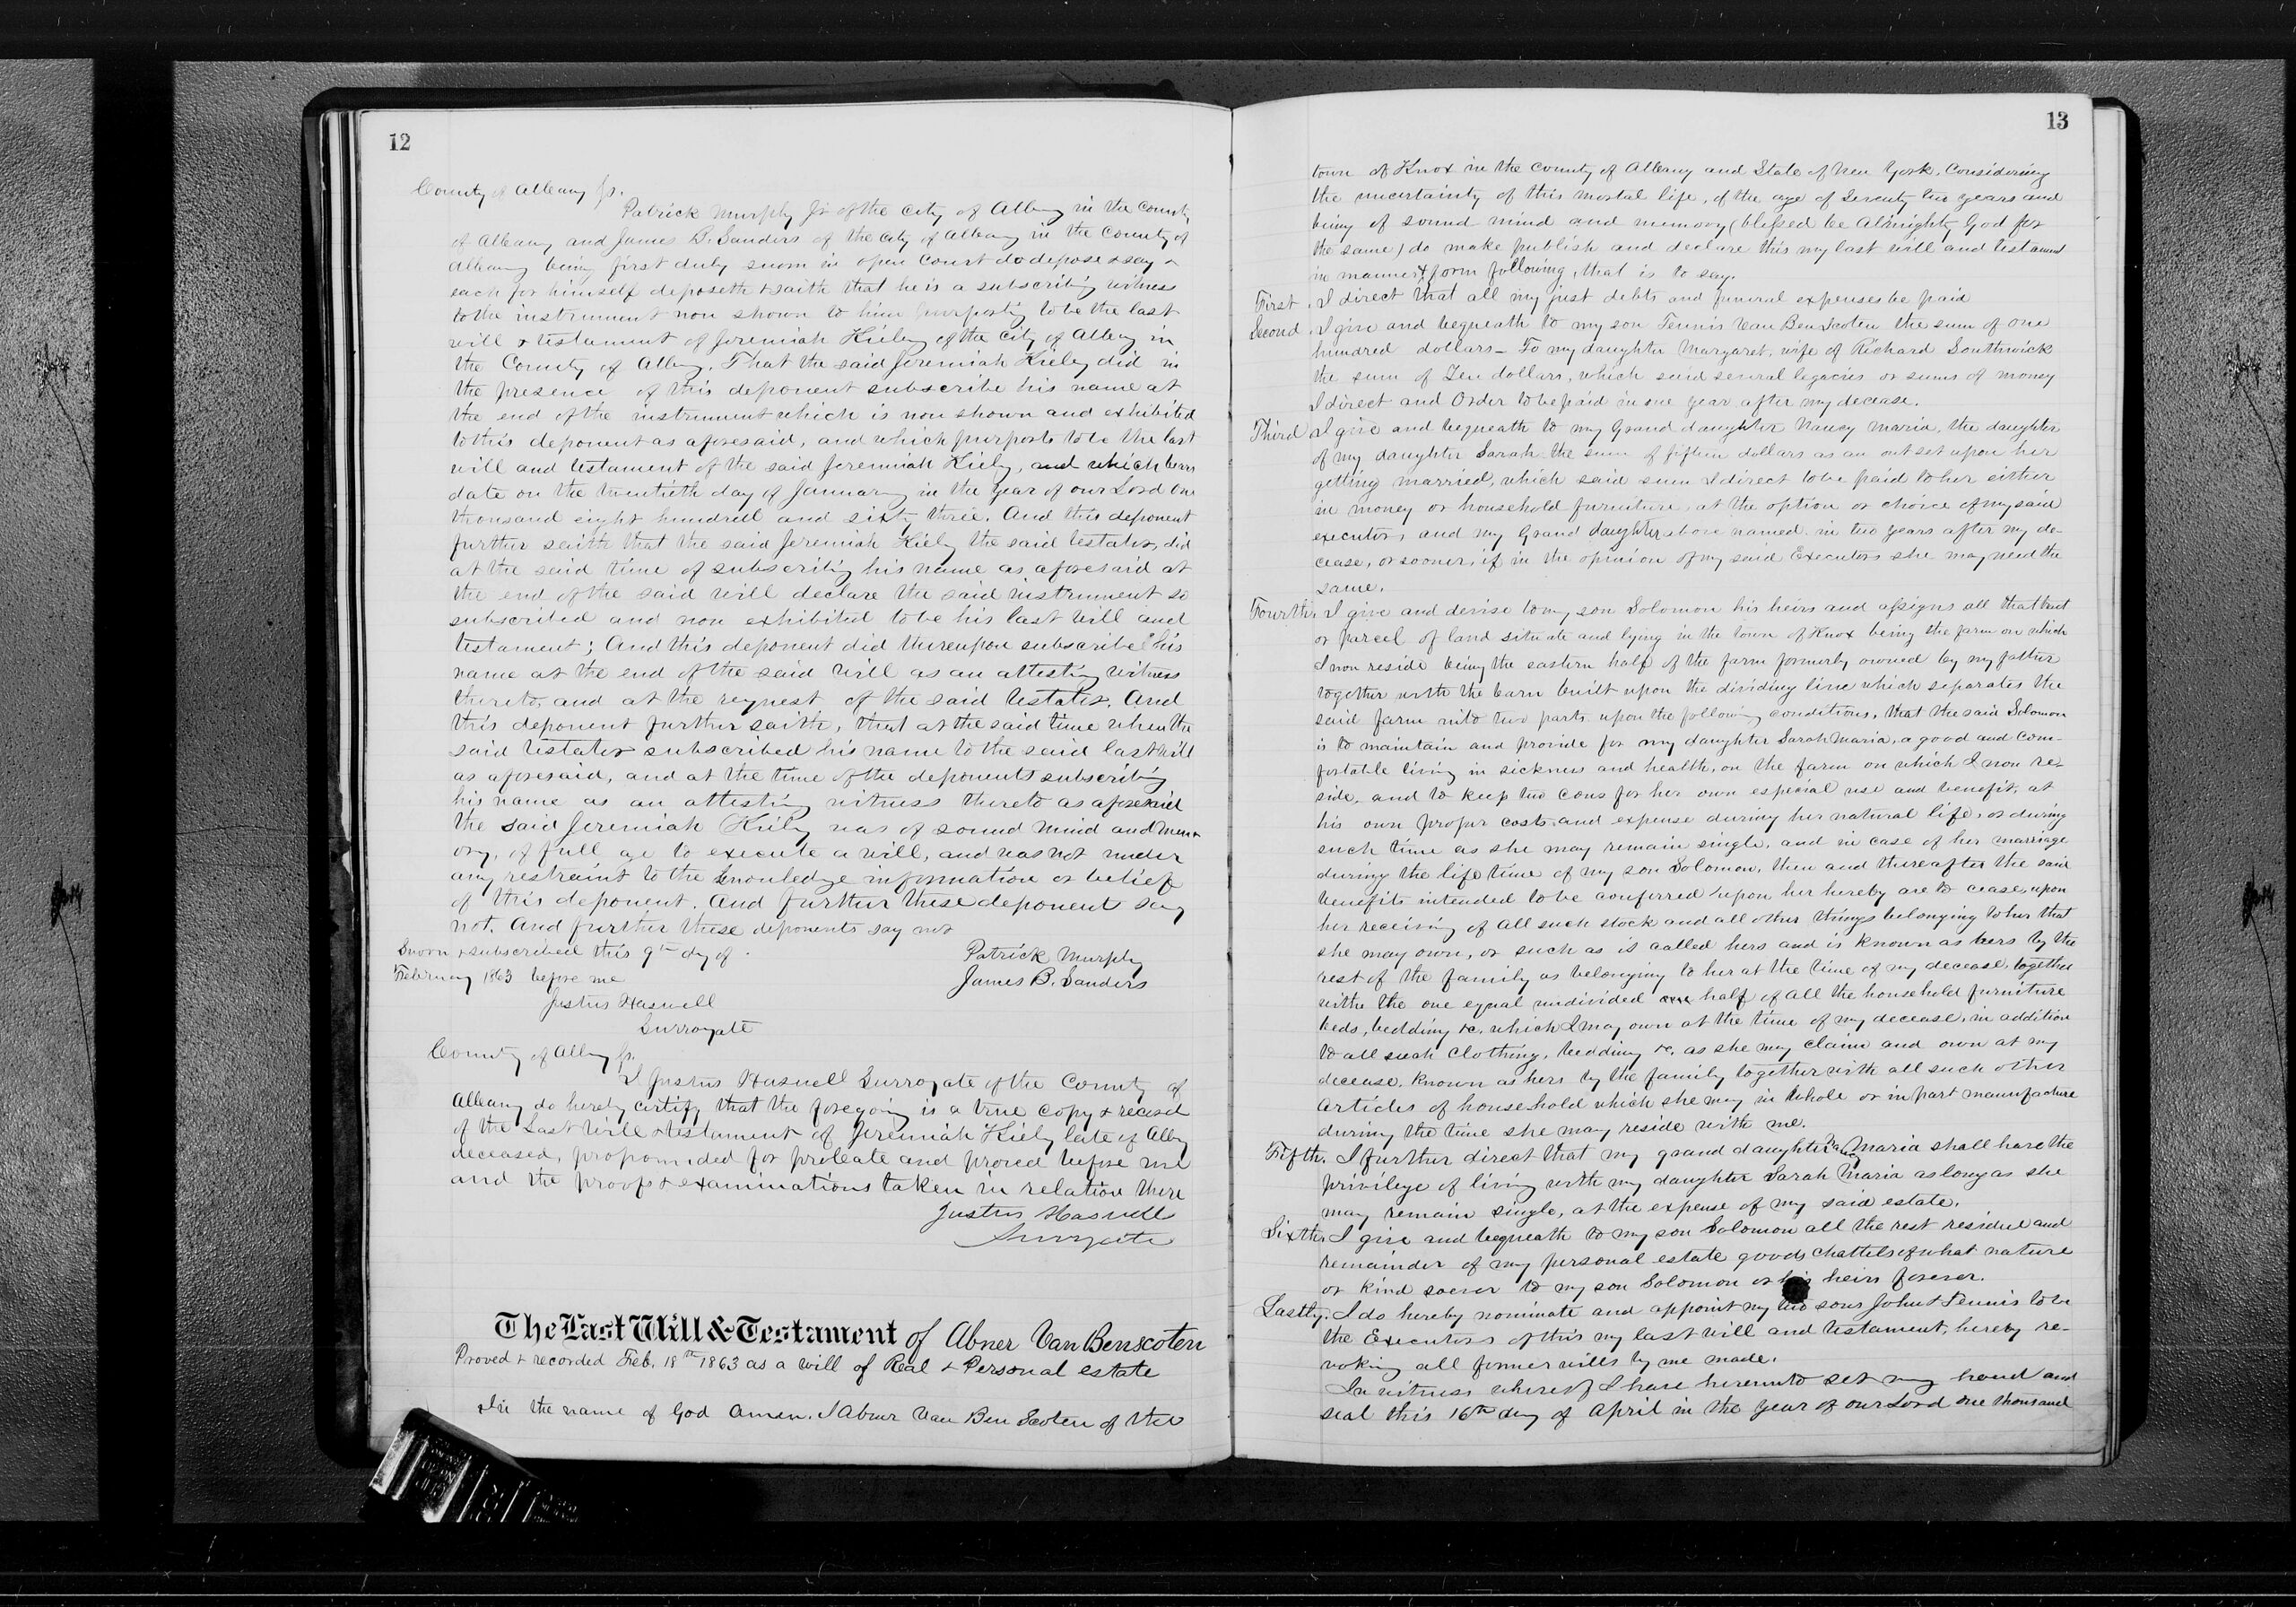 12
County of Albany Ss.
Patrick Murphy Jr of the City of Albany in the County
of Albany and James B. Sanders of the City of Albany in the County of
Albany being first duly sworn in open Court do depose & say &
each for himself deposeth & saith that he is a subscribing witness
to the instrument now shown to him purporting to be the last
will & testament of Jeremiah Kieley of the City of Albany in
the County of Albany. That the said Jeremiah Kieley did in
the presence of this deponent subscribe his name at
the end of the instrument which is now shown and exhibited
to this deponent as aforesaid, and which purports to be the last
will and testament of the said Jeremiah Kiely, and which bears
date on the twentieth day of January in the year of our Lord One
thousand eight hundred and sixty three. And this deponent
further saith that the said Jeremiah Kiely the said testator, did
at the said time of subscribing his name as aforesaid at
the end of the said will declare the said instrument so
subscribed and now exhibited to be his last will and
testament; And this deponent did thereupon subscribe his
name at the end of the said will as an attesting witness
thereto, and at the request of the said testator. And
this deponent further saith, that at the said time when the
said testator subscribed his name to the said last will
as aforesaid, and at the time of the deponents subscribing
his name as an attesting witness thereto as aforesaid
the said Jeremiah Kiely was of sound mind and mem-
ory, of full age to execute a will, and was not under
any restraint to the knowledge information or belief
of this deponent. And further these deponent say
not. And further these deponents say not
Sworn & subscribed this 9th day of
Patrick Murphy
February 1863 before me
James B. Sanders
Justus Haswell
Surrogate
County of Albany Ss.
I Justus Haswell Surrogate of the County of
Albany do hereby certify that the foregoing is a true copy & record
of the Last Will & testament of Jeremiah Kiely late of Albany
deceased, propounded for probate and proved before me
and the proofs & examinations taken in relation there
Justus Haswell
Surrogate
The Last Will & Testament of Abner Van Benscoten
Proved & recorded Feb. 18th 1863 as a will of Real & Personal estate
In the name of God Amen. I Abner Van Ben Scoten of the
13
town of Knox in the County of Albany and State of New York. Considering
the uncertainty of this mortal life, of the age of Seventy two years and
being of sound mind and memory (blessed be Almighty God for
the same) do make publish and declare this my last will and testament
in manner & form following, that is to say.
First. I direct that all my just debts and funeral expenses be paid
Second. I give and bequeath to my son Tennis Van Ben Scoten the sum of one
hundred dollars – To my daughter Margaret, wife of Richard Southwick
the sum of Ten dollars, which said several legacies or sums of money
I direct and Order to be paid in one year after my decease.
Third I give and bequeath to my Grand daughter Nancy Maria, the daughter
of my daughter Sarah the sum of fifteen dollars as an outset upon her
getting married, which said sum I direct to be paid to her either
in money or household furniture, at the option or choice of my said
executors, and my Grand daughter above named, in two years after my de-
cease, or sooner, if in the opinion of my said Executors she may need the
same.
Fourth. I give and devise to my son Solomon his heirs and assigns all that tract
or parcel of land situate and lying in the town of Knox being the farm on which
I now reside being the eastern half of the farm formerly owned by my father
together with the barn built upon the dividing line which separates the
said farm into two parts upon the following conditions, that the said Solomon
is to maintain and provide for my daughter Sarah Maria, a good and com-
fortable living in sickness and health, on the farm on which I now re-
side, and to keep two cows for her own especial use and benefit, at
his own proper costs and expense during her natural life, or during
such time as she may remain single, and in case of her marriage
during the life time of my son Solomon, then and thereafter the said
benefits intended to be conferred upon her hereby are to cease, upon
her receiving of all such stock and all other things belonging to her that
she may own, or such as is called hers and is known as hers by the
rest of the family as belonging to her at the time of my decease, together
with the one equal undivided one half of all the household furniture
beds, bedding &c. which I may own at the time of my decease, in addition
to all such clothing, bedding &c. as she may claim and own at my
decease, known as hers by the family together with all such other
Articles of household which she may in whole or in part manufacture
during the time she may reside with me.
Fifth. I further direct that my grand daughter Nancy Maria shall have the
privilege of living with my daughter Sarah Maria as long as she
may remain single, at the expense of my said estate.
Sixth. I give and bequeath to my son Solomon all the rest residue and
remainder of my personal estate goods chattels of what nature
or kind soever to my son Solomon or his heirs forever.
Lastly. I do hereby nominate and appoint my two sons John & Tennis to be
the Executors of this my last will and testament, hereby re-
voking all former wills by me made.
In witness whereof I have hereunto set my hand and
seal this 16th day of April in the year of our Lord One thousand